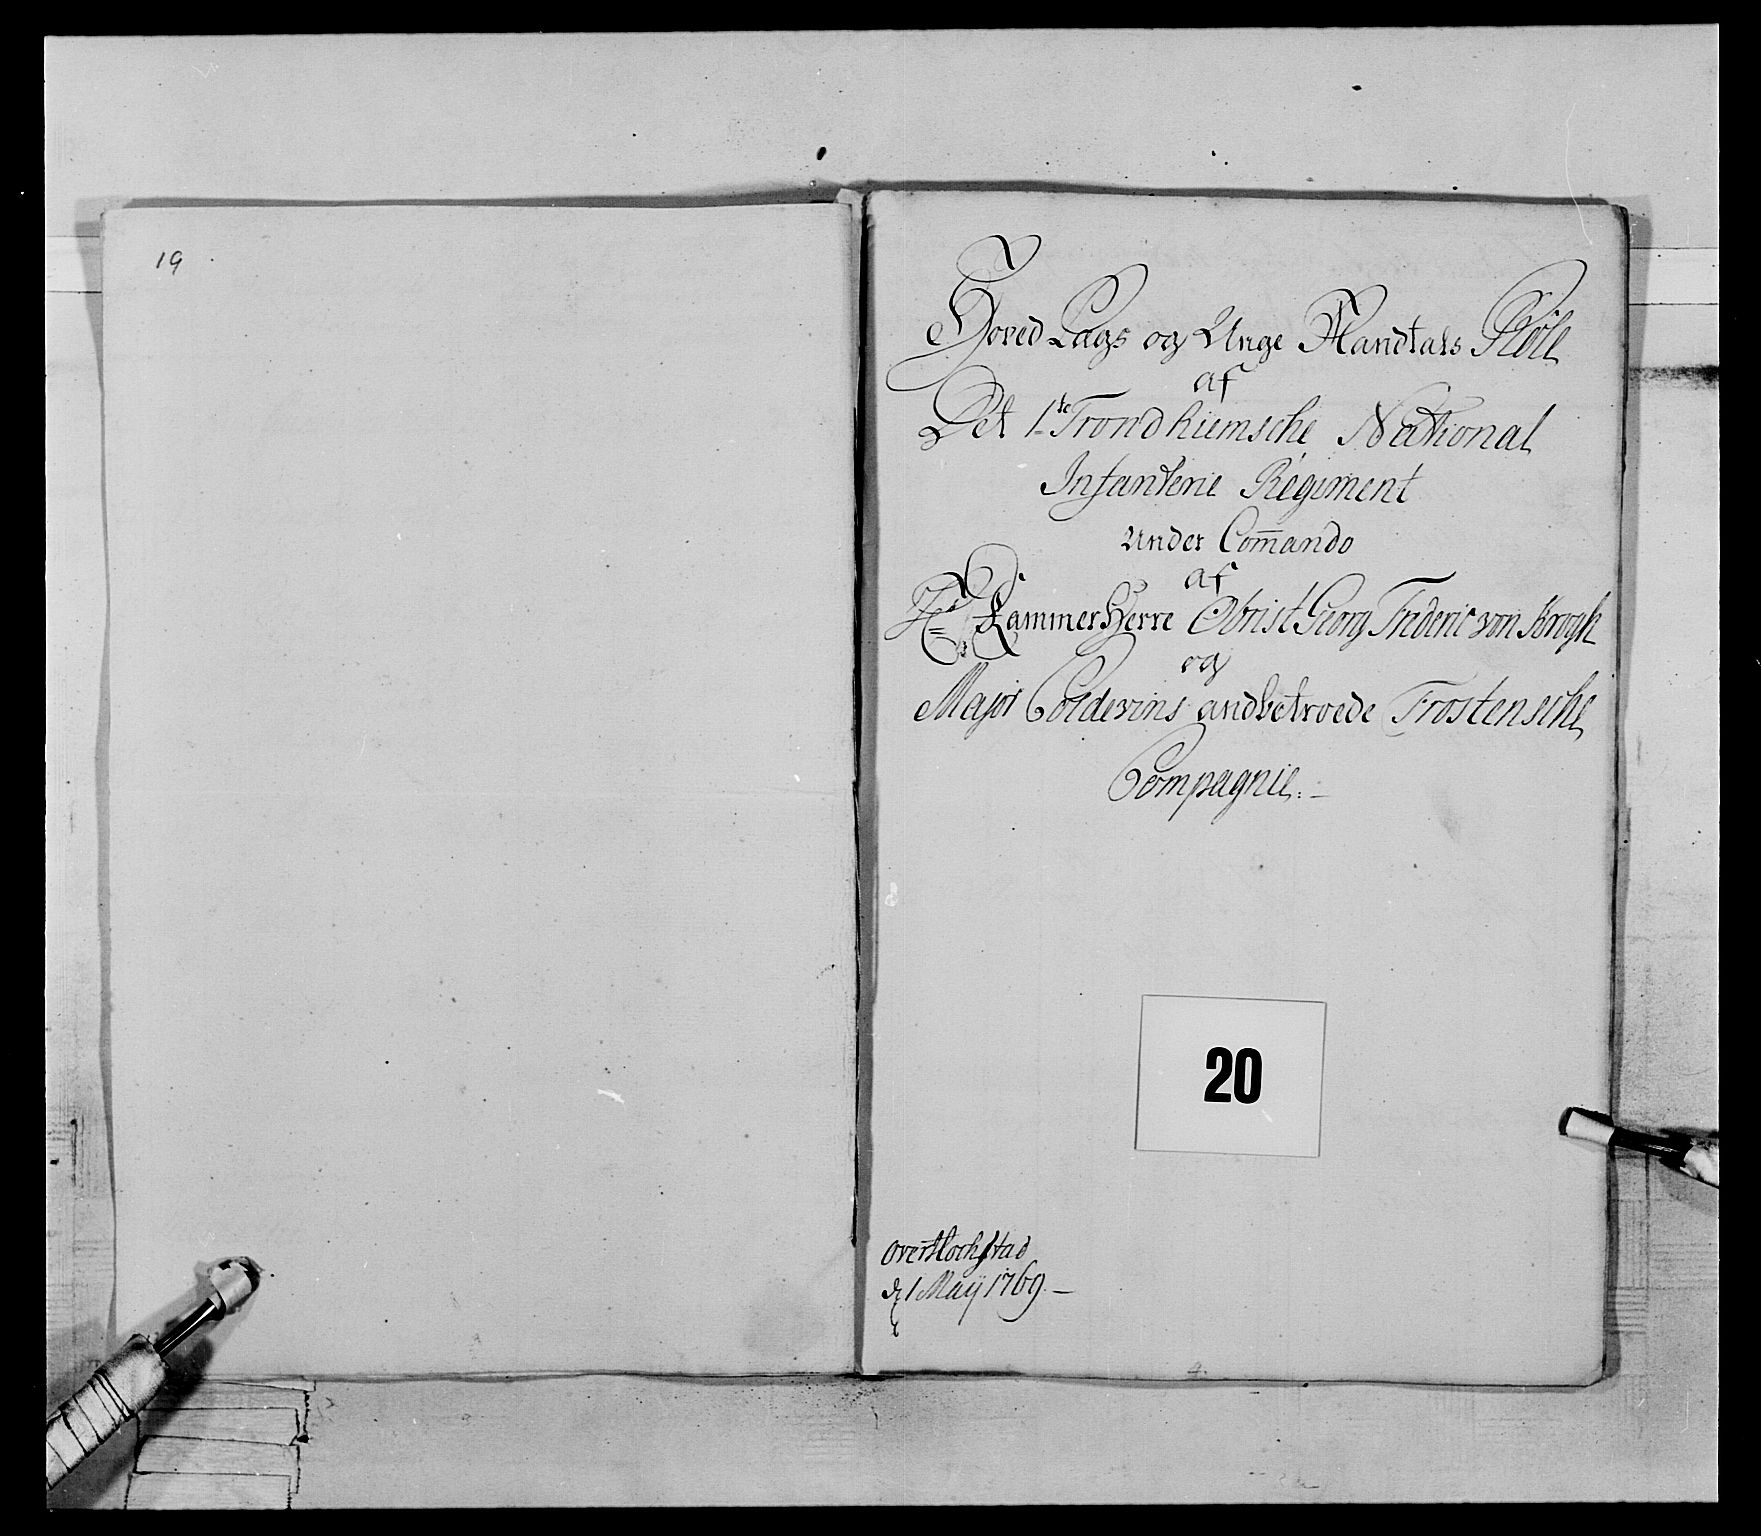 19
Hoved Lags og Unge Mandtals Rolle
af
Det 1te Trondhiemsche National
Infanterie Regiment
under Com̄ando
af
Hr Kammer Herre Obrist Georg Frederic von Krogh
og
Major Coldevins andbetroede Frostensche
Compagnie:-
20
d 1 Maij 1769.-